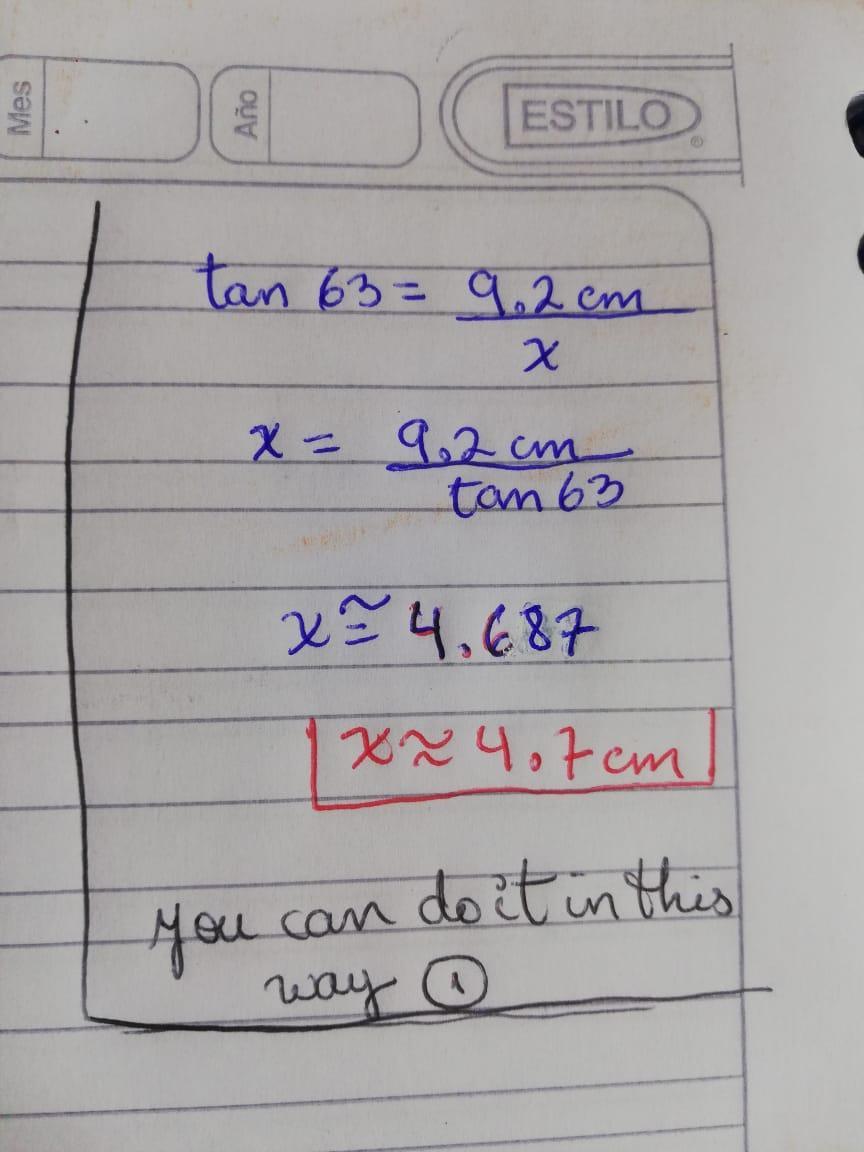 Mes
Año
ESTILO®
tan 63 = 9.2 cm
x
x = 9.2 cm
tan 63
x ≅ 4.687
x ≈ 4.7 cm
you can do it in this
way ①